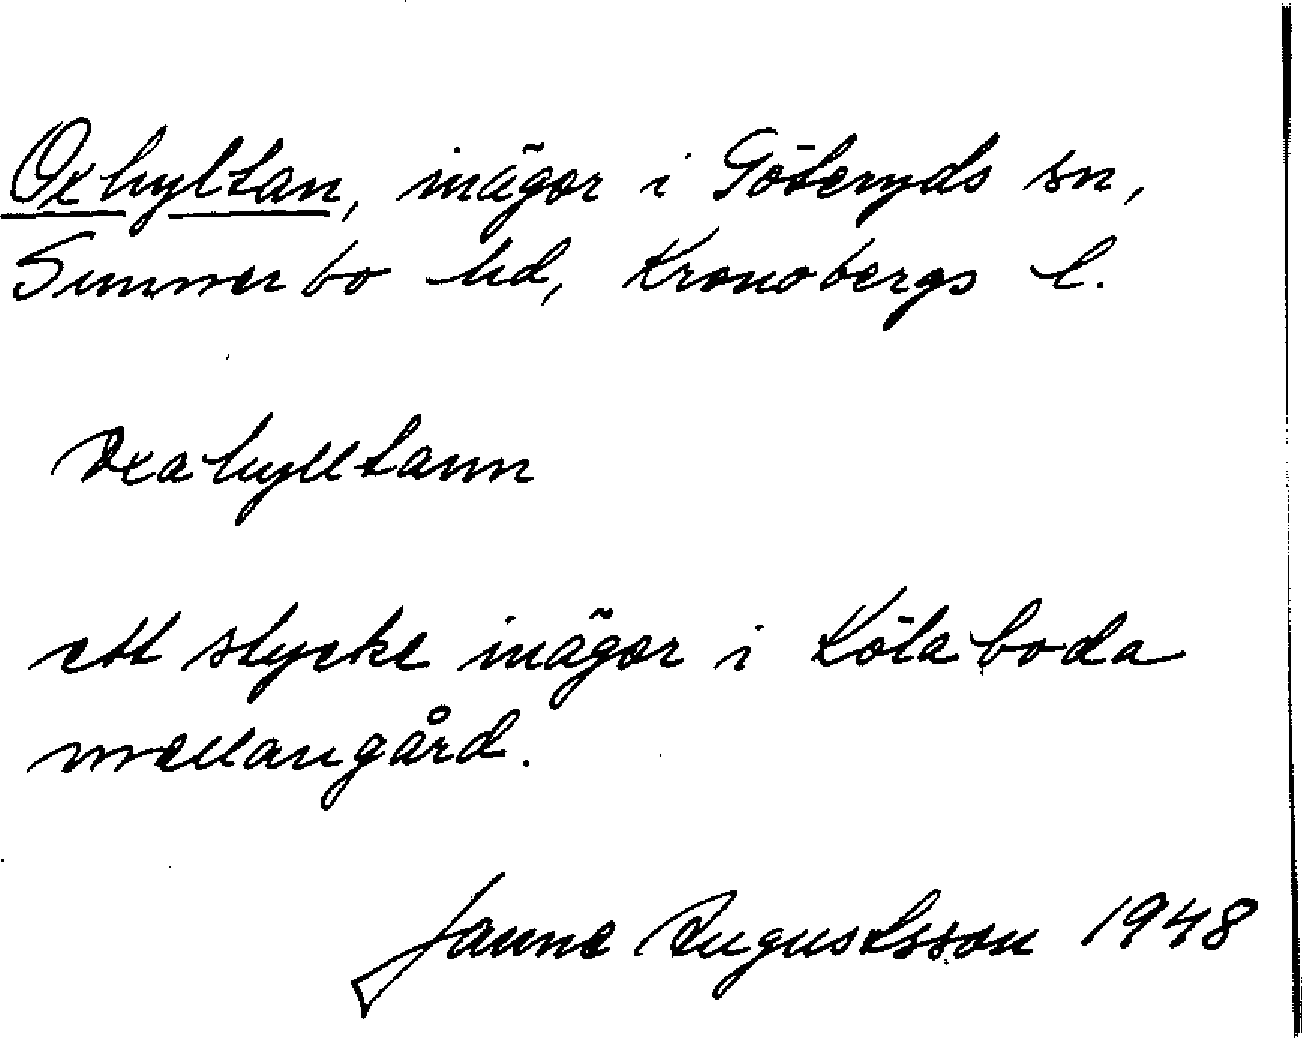 Oxhyltan, inägor i Göteryds sn,
Sunnerbo hd, Kronobergs l.
oxahylltann
ett stycke inägor i Kötaboda
mellangård.
Janne Augustsson 1948